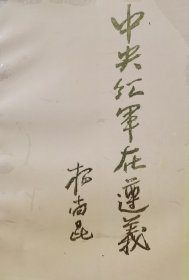 中央红军在遵義
杨尚昆